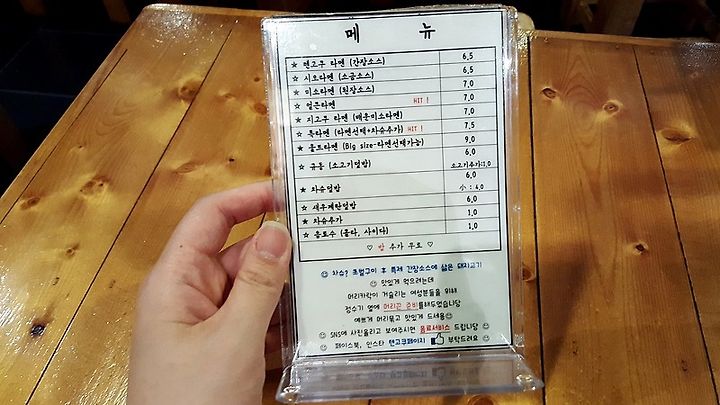 메 뉴
★ 텐고쿠 라멘 (간장소스) 6,5
☆ 시오라멘 (소금소스) 6,5
★ 미소라멘 (된장소스) 7,0
☆ 얼큰라멘 HIT! 7,0
★ 지고쿠 라멘 (매운미소라멘) 7,0
☆ 특라멘 (라멘선택+차슈추가) HIT! 7,5
★ 울트라멘 (Big size-라멘선택가능) 9,0
☆ 규동 (소고기덮밥) 6,0
소고기추가:1,0
★ 차슈덮밥 6,0
小 : 4,0
☆ 새우계란덮밥 6,0
★ 차슈추가 1,0
☆ 음료수 (콜라, 사이다) 1,0
♡ 밥 추가 무료 ♡
☺ 차슈? 초벌구이 후 특제 간장소스에 삶은 돼지고기
☺ 맛있게 먹으려는데
머리카락이 거슬리는 여성분들을 위해
정수기 옆에 머리끈 준비를해두었습니당
예쁘게 머리묶고 맛있게 드세용☺
☺ SNS에 사진올리고 보여주시면 음료서비스 드립니당 ☺
☺ 페이스북, 인스타 텐고쿠페이지 👍 부탁드려요 ☺